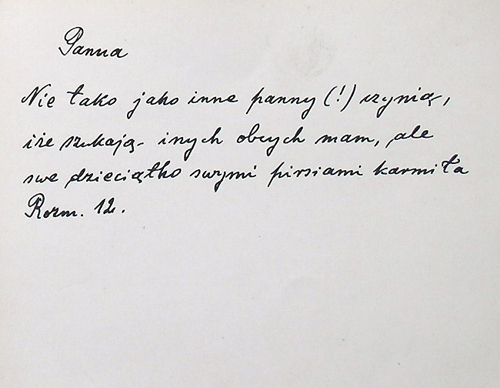 Panna
Nie tako jako inne panny (!) czynią,
iże szukają inych obcych mam, ale
swe dzieciątko swymi pirsiami karmiła
Rozm. 12.